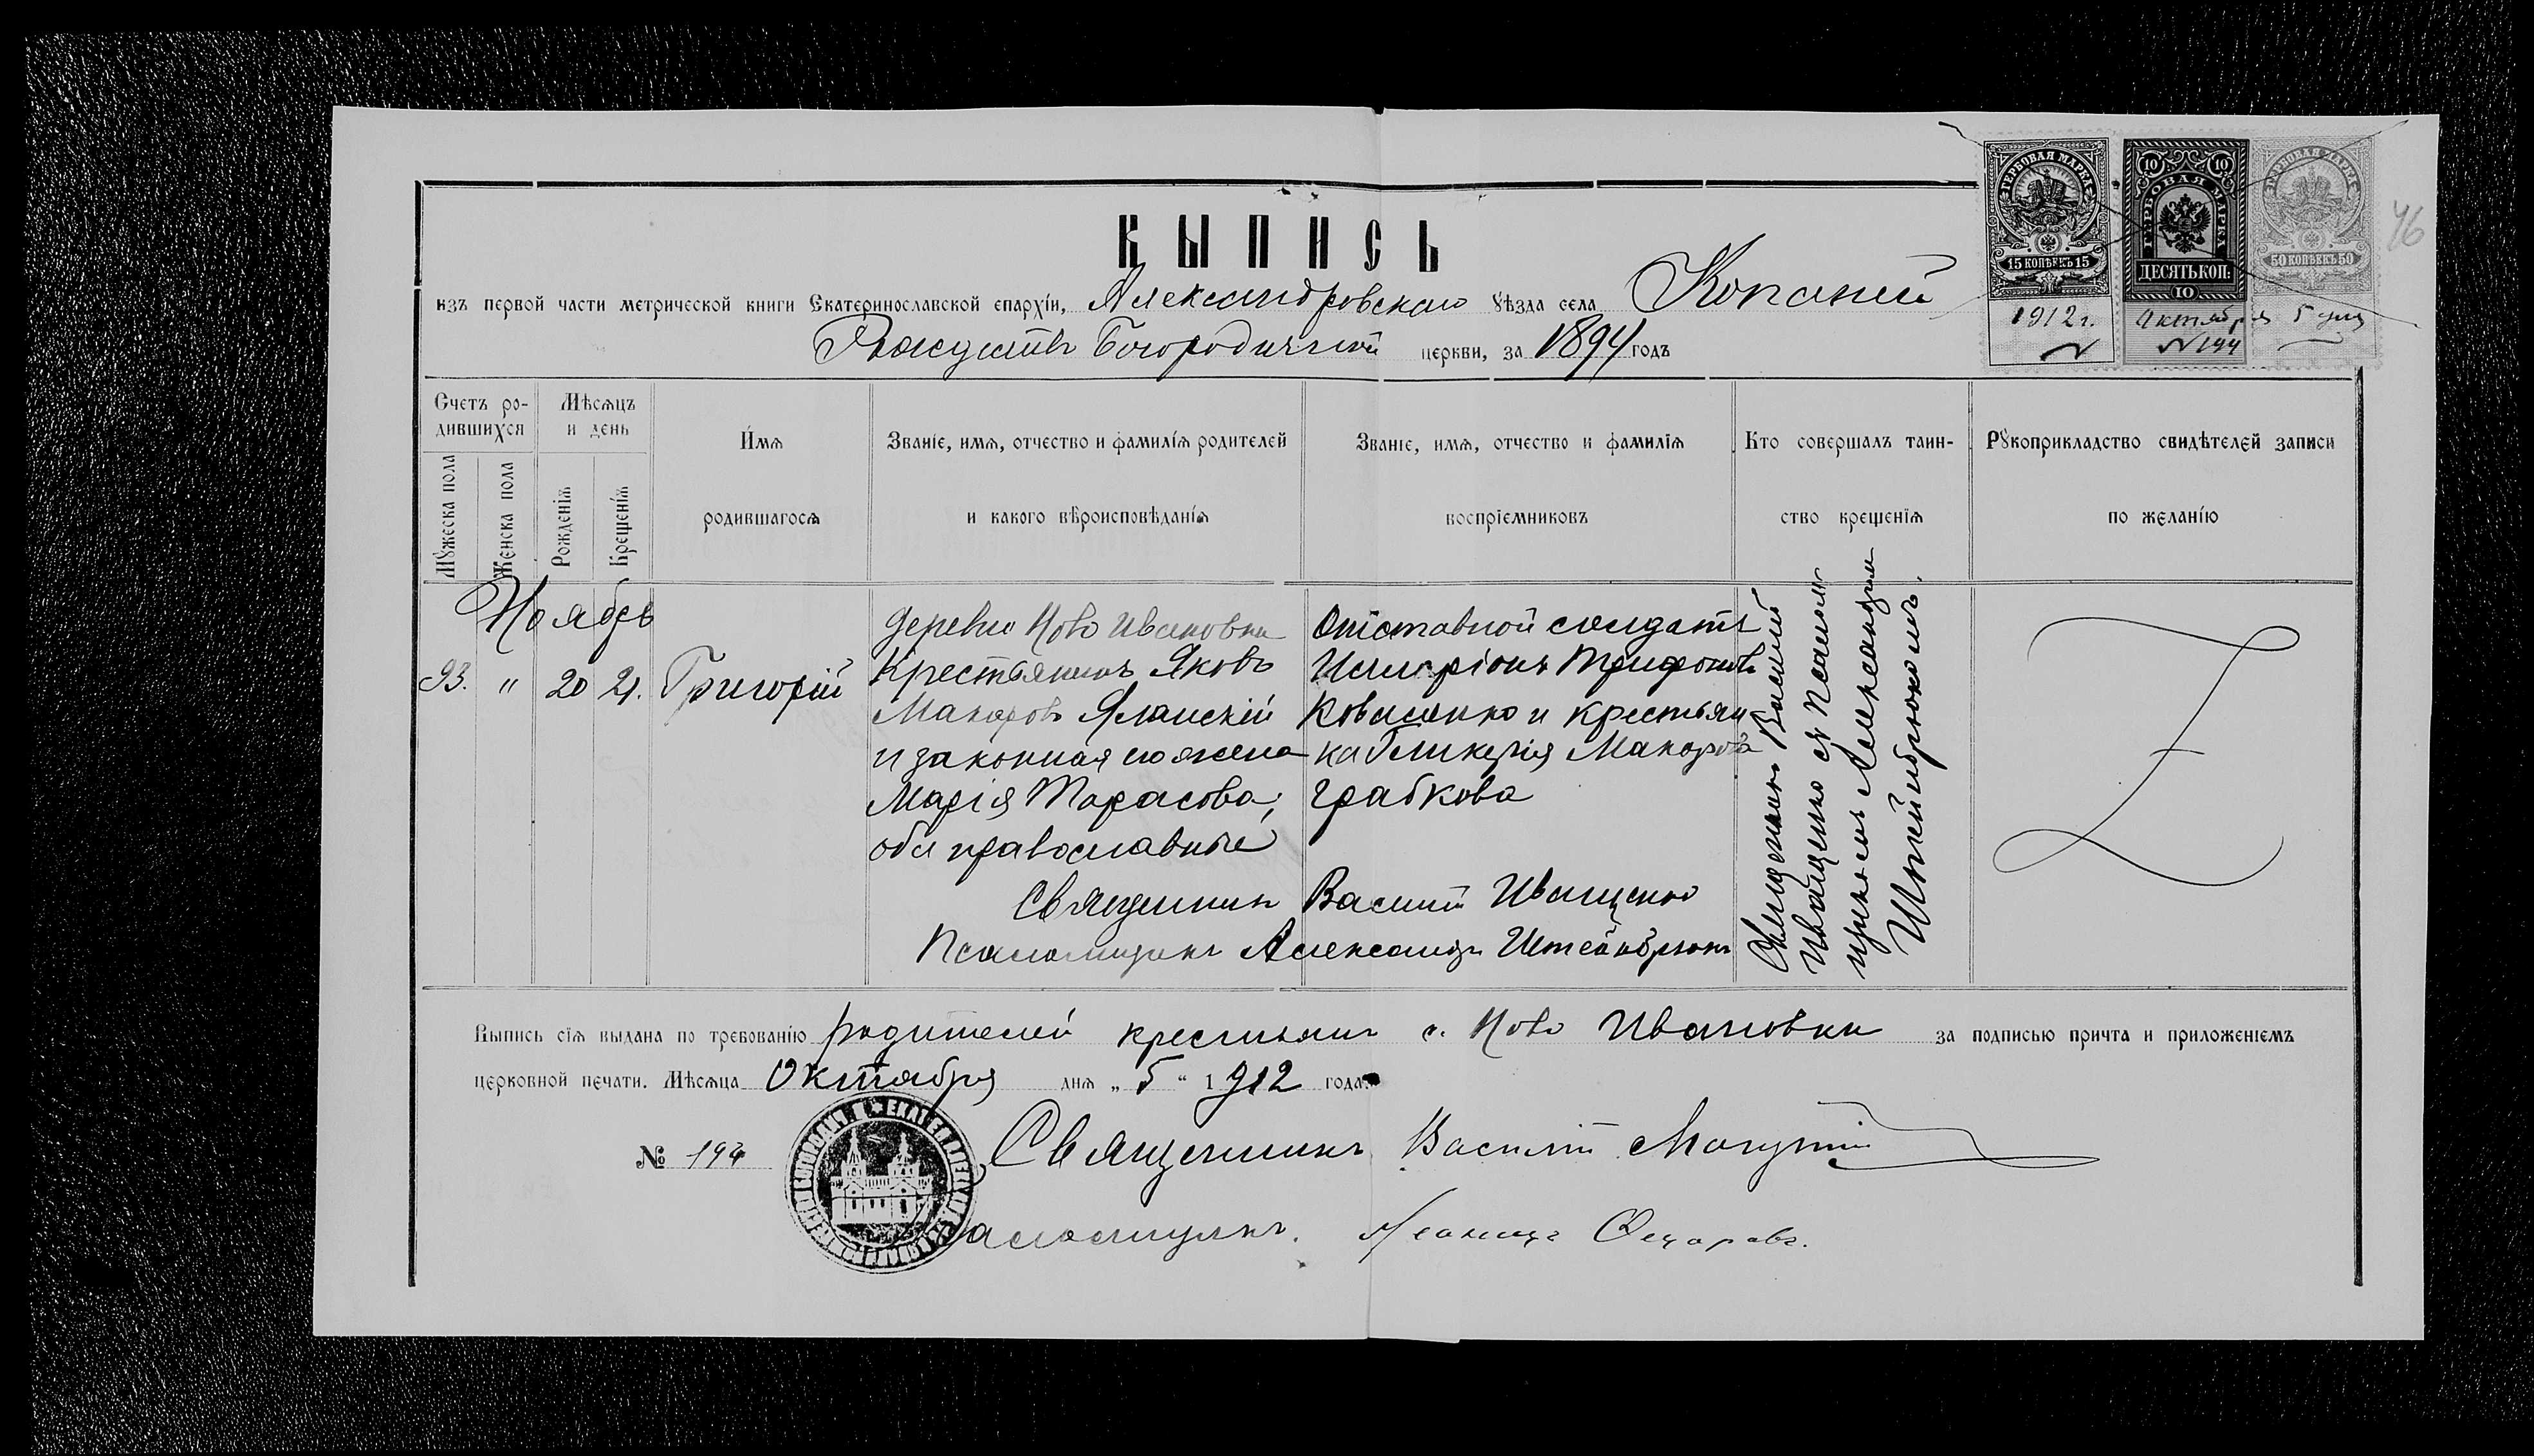 ВЫПИСЬ
изъ первой части метрической книги Екатеринославской епархіи, Александровскаго уѣзда села Копаней
Рождество Богородичной церкви, за 1894 годъ
ГЕРБОВАЯ МАРКА
15 КОПѢЕКЪ 15
1912 г.
10 10
ГЕРБОВАЯ МАРКА
ДЕСЯТЬ КОП:
10
Октября
№ 194
ГЕРБОВАЯ МАРКА
50 КОПѢЕКЪ 50
5 дня
46
Счетъ ро-
дившихся
Мужеска пола
Женска пола
Мѣсяцъ
и день
Рожденія
Крещенія
Имя
родившагося
Званіе, имя, отчество и фамилія родителей
и какого вѣроисповѣданія
Званіе, имя, отчество и фамилія
воспріемниковъ
Кто совершалъ таин-
ство крещенія
Рукоприкладство свидѣтелей записи
по желанію
Ноябрь
93. " 20 21. Григорій
деревни Ново Ивановки
Крестьянинъ Яковъ
Макаровъ Яланскій
и законная его жена
Марія Тарасова,
оба православные
Отставной солдатъ
Иларіонъ Трифоновъ
Коваленко и крестьян
ка Гликерія Макарова
Грабкова
Священникъ Василій
Иващенко съ Псалом
щикомъ Александромъ
Штейнбрюкомъ.
Священникъ Василій Иващенко
Псаломщикъ Александръ Штейнбрюкъ
Выпись сія выдана по требованію родителей крестьянъ с. Ново Ивановки за подписью причта и приложеніемъ
церковной печати. Мѣсяца Октября дня „ 5 “ 1912 года.
№ 194
Священникъ Василій
Псаломщикъ.